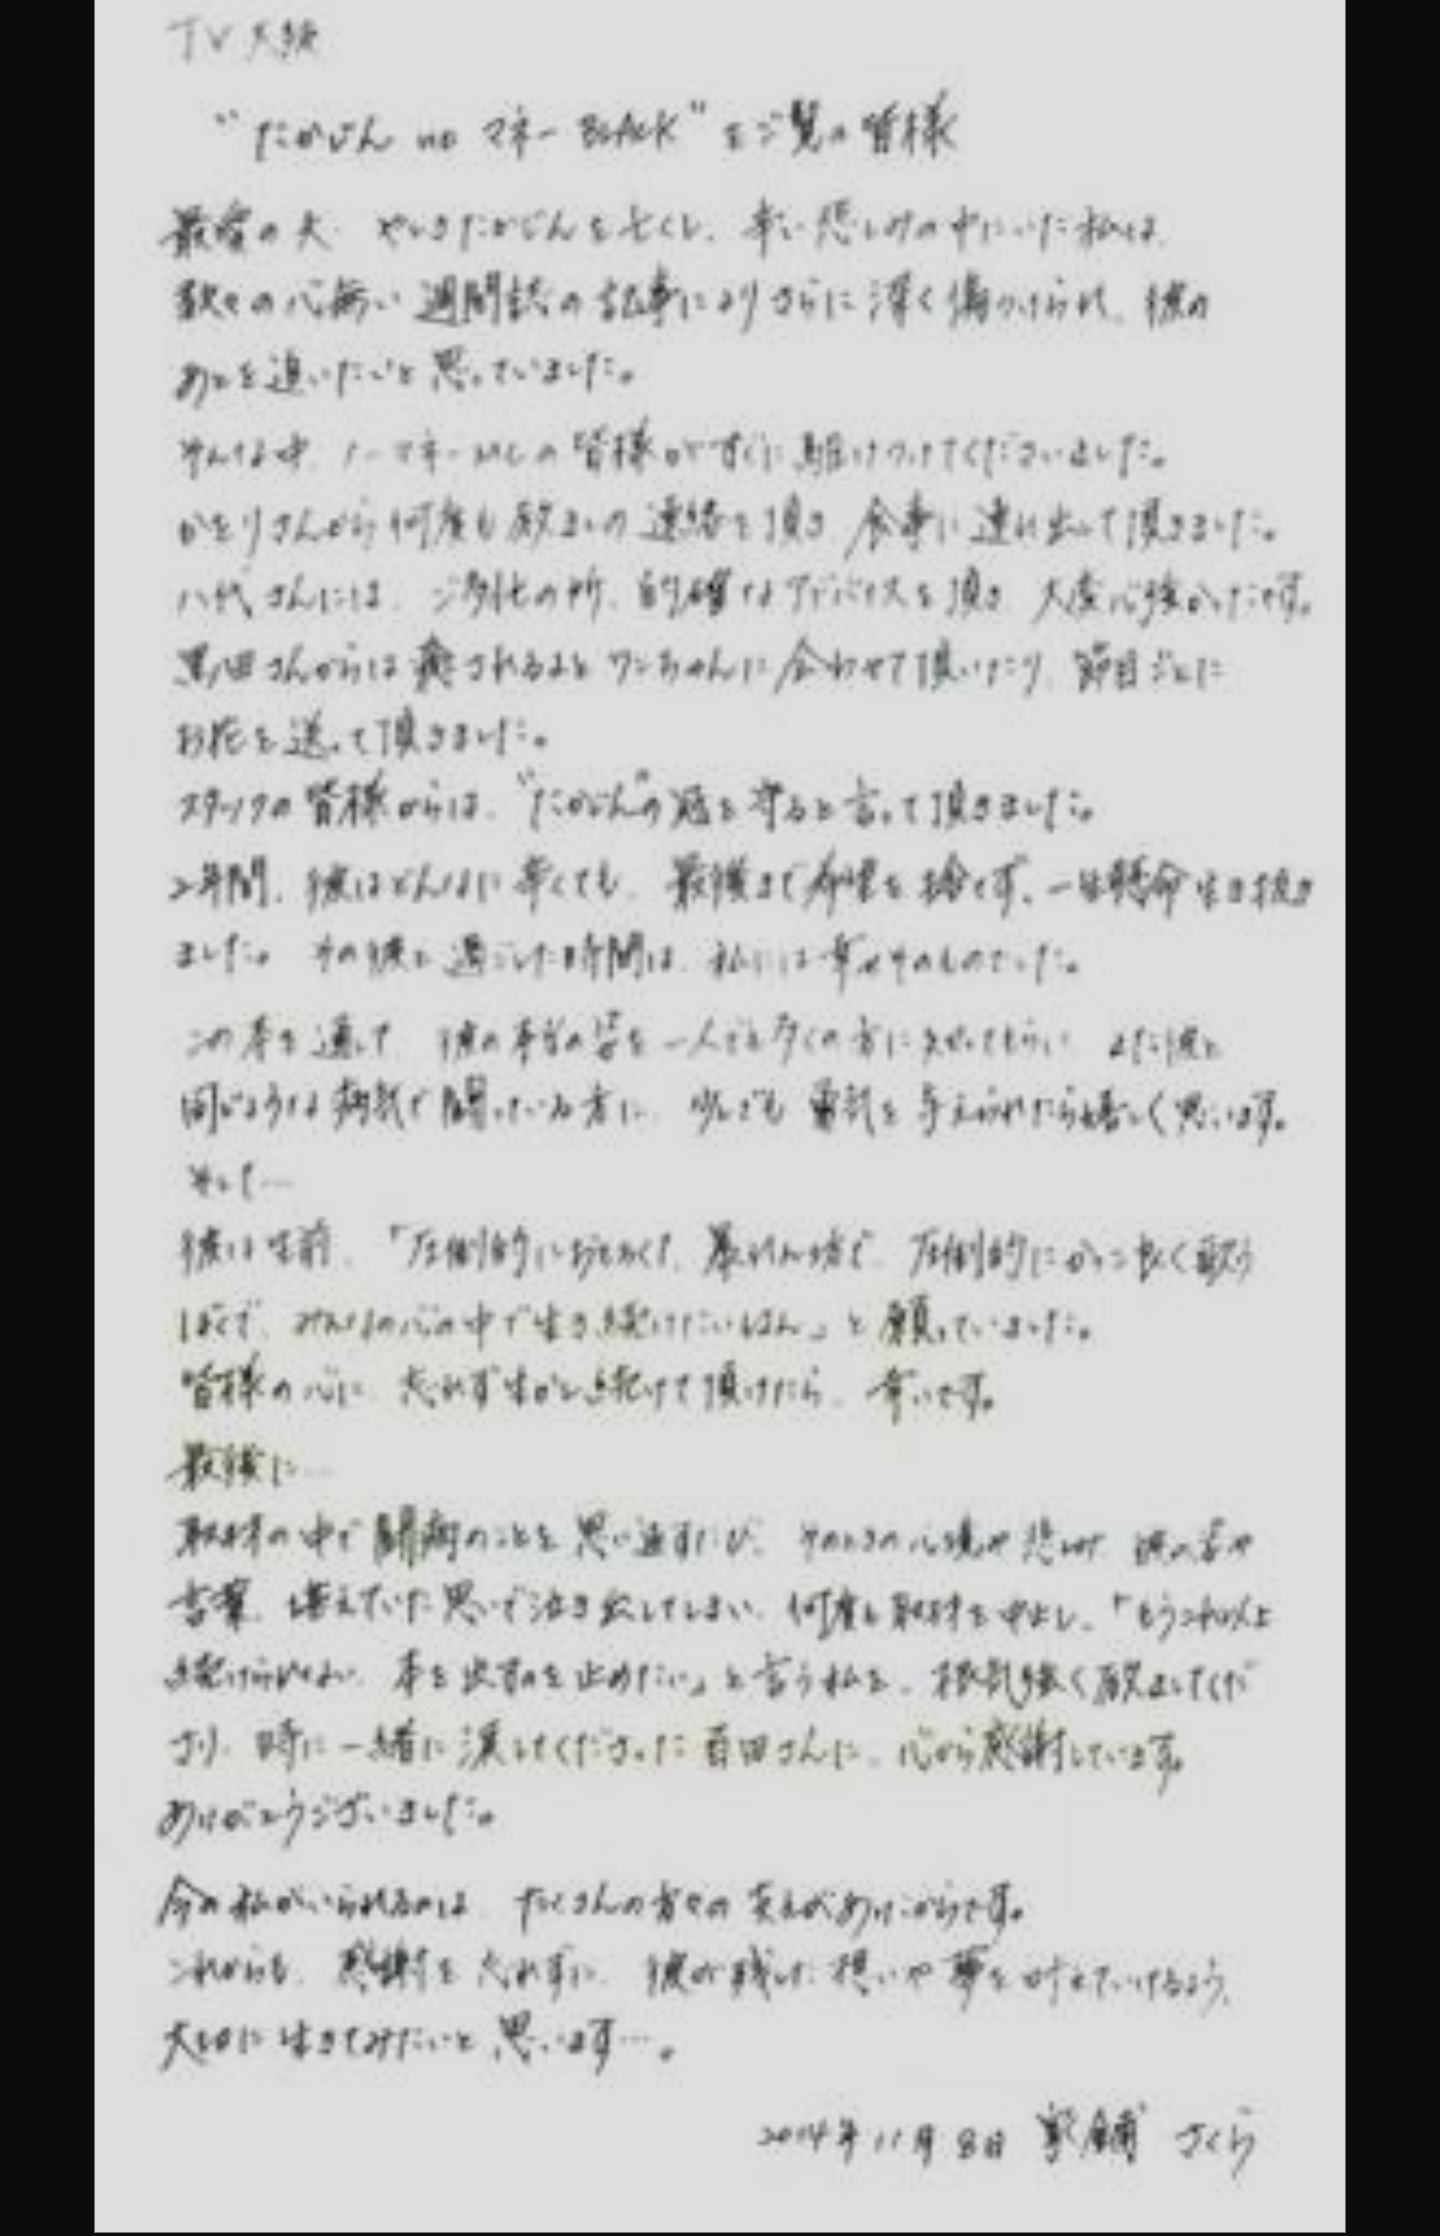 TV大阪
"たかじん no マネー BLACK" をご覧の皆様
最愛の夫 やしきたかじんを亡くし、辛い悲しみの中にいた私は、
数々の心無い週間誌の記事によりさらに深く傷つけられ、彼の
あとを追いたいと思っていました。
そんな中、ノーマネーMCの皆様がすぐに駆けつけてくださいました。
かとりさんから何度も励ましの連絡を頂き、食事に連れ出して頂きました。
八代さんには、ご多忙の所、的確なアドバイスを頂き、大変心強かったです。
黒田さんからは癒されるよとワンちゃんに会わせて頂いたり、節目ごとに
お花を送って頂きました。
スタッフの皆様からは、"たかじん"の冠を守ると言って頂きました。
2年間、彼はどんなに辛くても、最後まで希望を捨てず、一生懸命生き抜き
ました。その彼と過ごした時間は、私には幸せそのものでした。
この本を通して、彼の本当の姿を一人でも多くの方に知ってもらい、また彼と
同じような病気で闘っている方に、少しでも勇気を与えられたら嬉しく思います。
そして…
彼は生前、「圧倒的におもろくて、暴れん坊で、圧倒的にかっこ良く歌う
ぼくで、みんなの心の中で生き続けたいねん」と願っていました。
皆様の心に、忘れず生かし続けて頂けたら、幸いです。
最後に…
取材の中で闘病のことを思い返すたび、そのときの心境や悲しみ、彼の姿や
言葉、堪えていた思いで泣き出してしまい、何度も取材を中止し、「もうこれ以上
続けられない、本を出すのを止めたい」と言う私を、根気強く励ましてくだ
さり、時に一緒に涙してくださった百田さんに、心から感謝しています。
ありがとうございました。
今の私がいられるのは、たくさんの方々の支えがあったからです。
これからも、感謝を忘れずに、彼が残した想いや夢を叶えていけるよう、
大切に生きてみたいと思います…。
2014年11月8日 家鋪 さくら